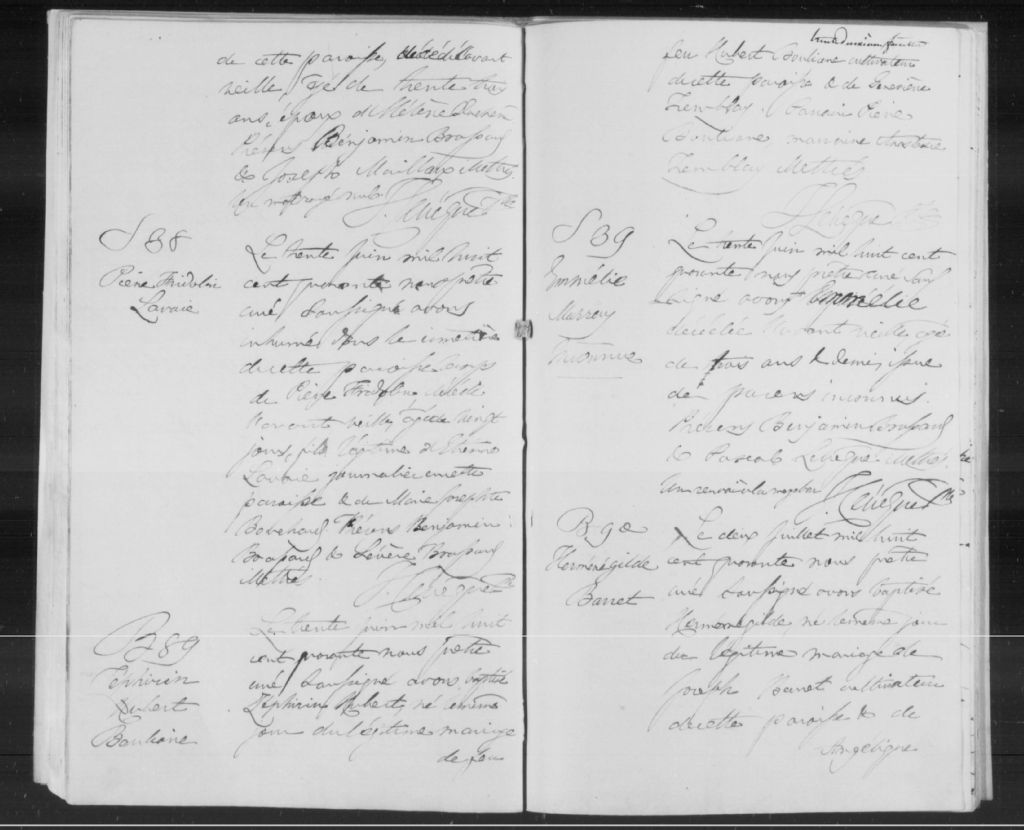 de cette paroise, décédé avant
veille, agé de trente trois
ans, époux d'Hélène
Présens Benjamin Brassard
& Joseph Maillaux
un mot rayé nul. J. Lévêque Ptre
S 38
Pierre Fridolin
Lavoie
Le trente juin mil huit
cent quarante nous prêtre
curé soussigné avons
inhumé dans le cimetière
de cette paroise le corps
de Pierre Fridolin, décédé
l'avant veille, agé de vingt
jours, fils légitime d'Etienne
Lavoie journalier de cette
paroise & de Marie Josephte
Bouchard Présens Benjamin
Brassard & Sévère Brassard
J. Lévêque Ptre
B 89
Zéphirin
Hubert
Bouliane
Le trente juin mil huit
cent quarante nous prêtre
curé soussigné avons baptisé
Zéphirin Hubert, né le même
jour du légitime mariage
de feu
feu Hubert Bouliane cultivateur
de cette paroise & de Geneviève
Tremblay. Parrain Pierre
Bouliane marraine
Tremblay
J. Lévêque Ptre
S 39
Emmélie
Le trente juin mil huit cent
quarante, nous prêtre curé sous
signé avons Emmélie
décédée l'avant veille agée
de trois ans & demi, issue
de parens inconnus.
Présens Benjamin Brassard
& Pascal Lévêque
un renvoi à la marge bon J. Lévêque Ptre
B 90
Herménégilde
Barret
Le deux juillet mil huit
cent quarante nous prêtre
curé soussigné avons baptisé
Herménégilde, né le même jour
du légitime mariage de
Joseph Barret cultivateur
de cette paroise & de
Angélique